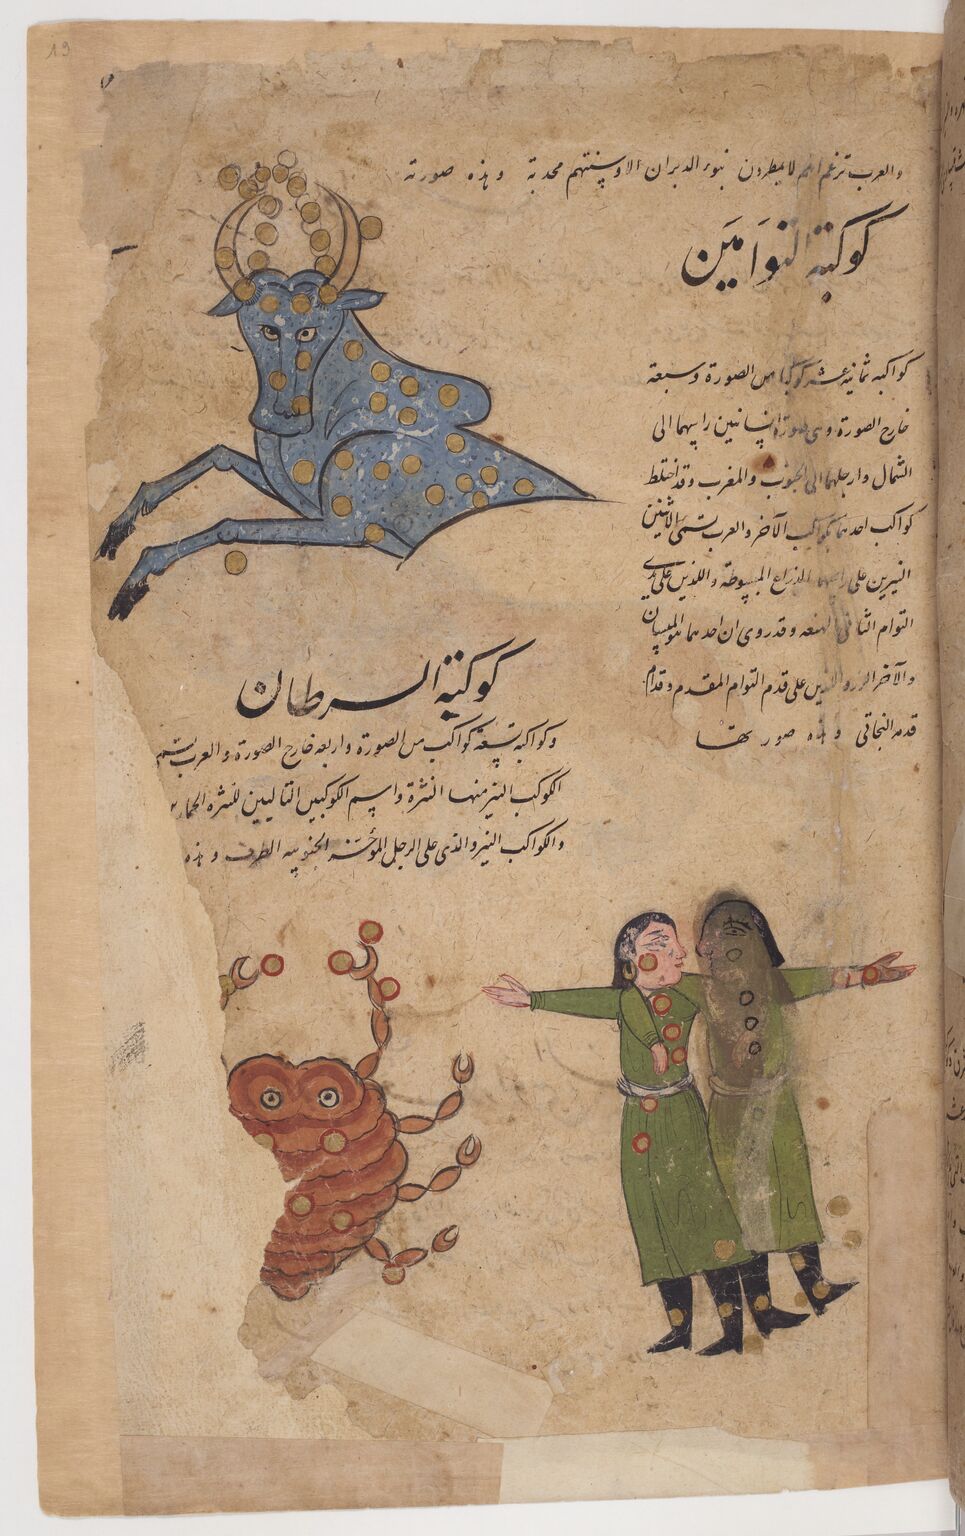 19
والعرب تزعم انهم لا يمطرون بنوء الدبران الا وسنتهم مجدبة وهذه صورته
كوكبة التوامين
كواكبه ثمانية عشر كوكبا من الصورة وسبعة
خارج الصورة وهى صورة انسانين راسهما الى
الشمال وارجلهما الى الجنوب والمغرب وقد اختلط
كواكب احدهما بكواكب الآخر والعرب تسمى الاثنين
النيرين على راسهما الذراع المبسوطة واللذين على يدى
التوام الثانى الهنعه وقد روى ان احدهما الميسان
والآخر الزر واللذين على قدم التوام المقدم وقدام
قدمه النجاتى وهذه صورتها
كوكبة السرطان
وكواكبه تسعة كواكب من الصورة واربعة خارج الصورة والعرب تسمى
الكوكب النير منها النثرة واسم الكوكبين التاليين للنثرة الحمار
والكواكب النير والذى على الرجل المؤخرة الجنوبيه الطرف وهذه